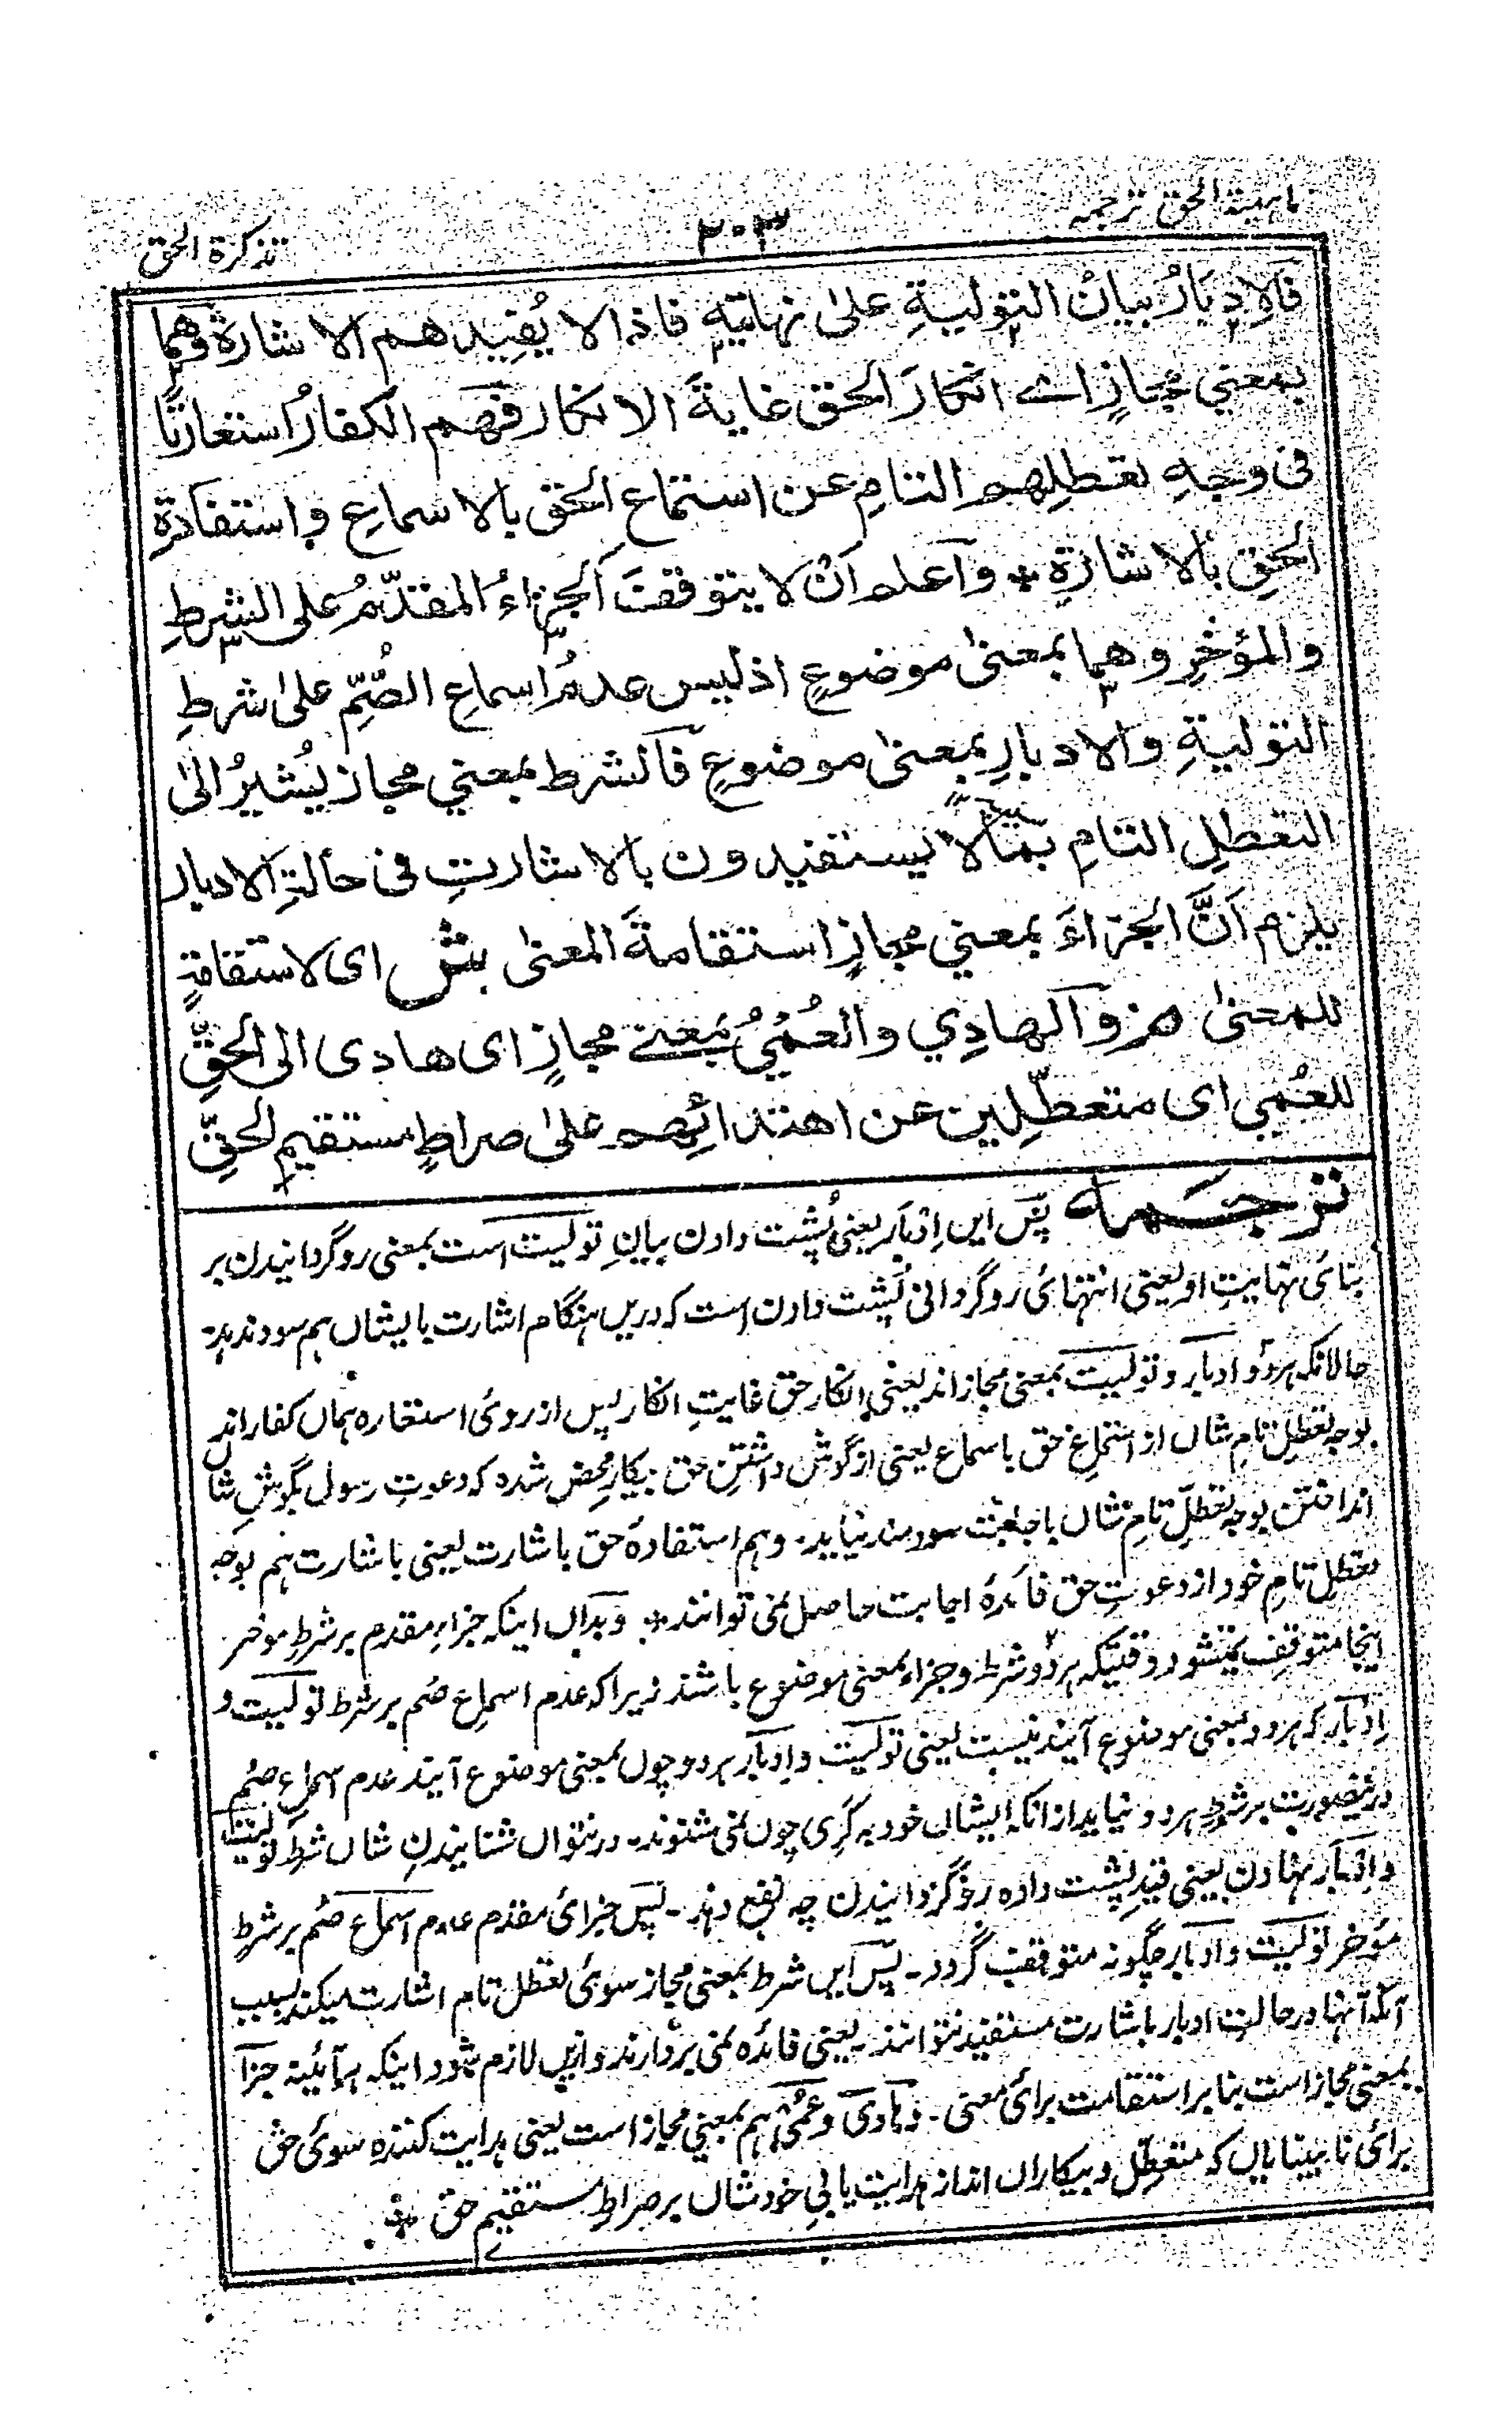 ماہیتہ الحق ترجمہ
۲۰۳
تذکرة الحق
فَالاِدبَارُ بیانُ التولیةِ علیٰ نہایتهٖ فاذا لا یُفِیدھم الا شارة وَھما
بمعنی مجازٍ اے انکارَ الحق غایةَ الانکار فَھم الکفارُ استعارتًا
فی وجهِ تعطلِھم التامِ عن استماعِ الحق بالاسماعِ و استفادةِ
الحقِ بالاشارةِ ۞ وَاعلم اَن لا یتوقفَ الجزاءُ المقدّمُ علی الشرطِ
والمؤخرِ وھما بمعنیٰ موضوعٍ اذ لیس عدمُ اسماعِ الصُّمِّ علیٰ شرطِ
التولیةِ والادبارِ بمعنیٰ موضوعٍ فَالشرط بمعنی مجازٍ یُشیرُ الیٰ
التعطلِ التامِ بمَا لا یستفیدون بالاشارتِ فی حالةِ الادبار
یلزم اَنَّ الجزاءَ بمعنی مجازٍ استقامةَ المعنیٰ بش ای لاستقامةٍ
للمعنیٰ ھز وَالھادِی والعُمْیُ بمعنے مجازٍ ای ھادی الی الحقِّ
للعُمیِ ای متعطّلِین عن اھتدائِھم علیٰ صراطٍ مستقیمِ الحقِّ
ترجمہ پس این اِدبار یعنی پُشت دادن بیانِ تولیت است بمعنی روگردانیدن بر
بنائ نہایتِ او یعنی انتہائ روگردانی پُشت دادن است کہ دریں ہنگام اشارت بایشاں ہم سود ندہد
حالانکہ ہردو ادبار و تولیت بمعنی مجاز اند یعنی انکار حق غایتِ انکار پس از روئ استعارہ ہماں کفار اند
بوجہ تعطلِ تامِ شاں از استماعِ حق باسماع یعنی از گوش داشتنِ حق بیکارِ محض شدہ کہ دعوتِ رسول بگوشِ شاں
انداختن بوجہ تعطلِ تامِ شاں باجابت سودمند نیاید۔ وہم استفادۂ حق باشارت یعنی باشارت ہم بوجہ
تعطلِ تامِ خود از دعوتِ حق فائدۂ اجابت حاصل نمی توانند ۞ وبداں اینکہ جزاءِ مقدم بر شرطِ موخر
اینجا متوقف نمیشود وقتیکہ ہردو شرط و جزاء بمعنی موضوع باشند زیرا کہ عدم اسماعِ صُم بر شرط تولیت و
اِدبار کہ ہردو بمعنی موضوع آیند نیست یعنی تولیت وادبار ہردو چوں بمعنی موضوع آیند عدم اسماع صُم
درینصورت بر شرطِ ہردو نیاید از انکہ ایشاں خود بہ کری چوں نمی شنوند۔ در نتواں شنانیدنِ شاں شرطِ تولیت
وادبار نہادن یعنی قیدِ پشت دادہ روگردانیدن چہ نفع دہد۔ پس جزائ مقدم عدم اسماع صُم بر شرطِ
مؤخر تولیت وادبار چگونہ متوقف گردد۔ پس ایں شرط بمعنی مجاز سوئ تعطل تام اشارت میکند بسبب
آنکہ آنہا در حالتِ ادبار باشارت مستفید نتوانند۔ یعنی فائدہ نمی بردارند وازیں لازم شود اینکہ ہرآئینہ جزا
بمعنی مجاز است بنا بر استقامت برائ معنی۔ وہادی وعُمی ہم بمعنی مجاز است یعنی ہدایت کنندہ سوئ حق
برائ نابینایاں کہ متعطل و بیکاراں اند از ہدایت یابیِ خودشاں بر صراطِ مستقیم حق ۞